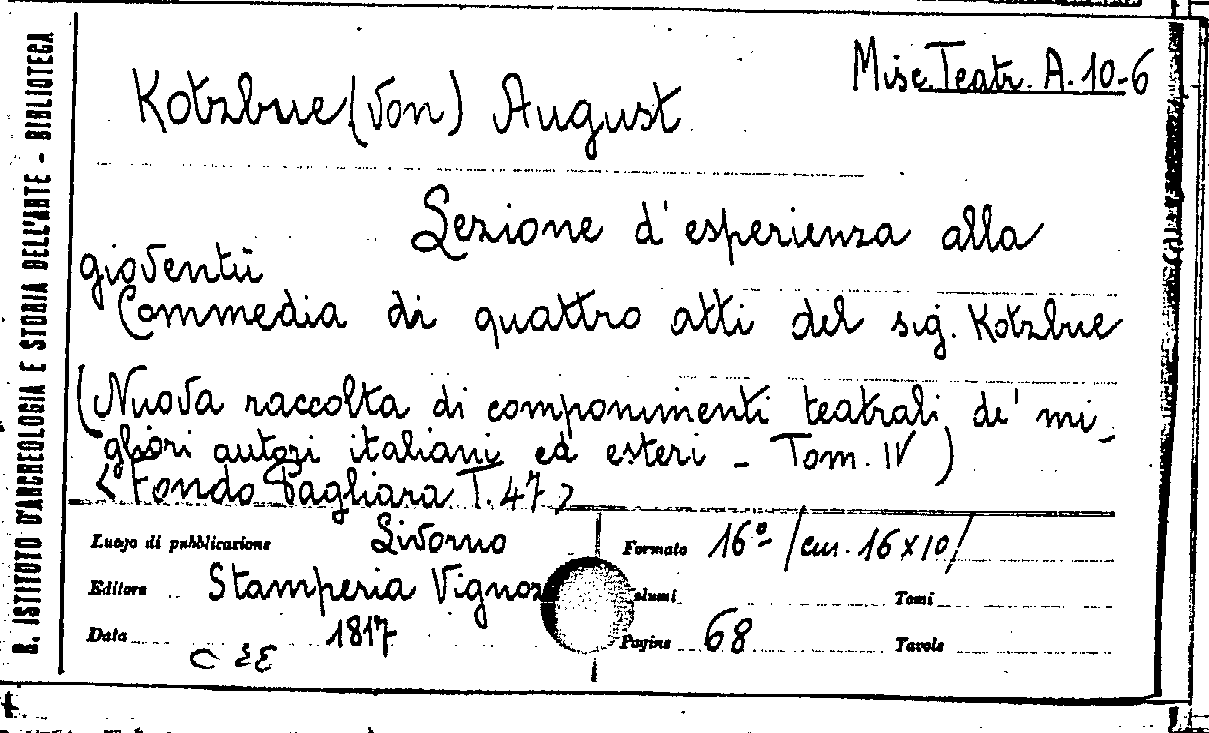 R. ISTITUTO D'ARCHEOLOGIA E STORIA DELL'ARTE - BIBLIOTECA
Misc. Teatr. A. 10-6
Kotzbue (von) August
Lezione d'esperienza alla
gioventù
Commedia di quattro atti del sig. Kotzbue
(Nuova raccolta di componimenti teatrali de' mi_
gliori autori italiani ed esteri - Tom. IV)
<Fondo Pagliara T. 47>
Luogo di pubblicazione Livorno
Formato 16º /cm. 16x10/
Editore Stamperia
Tomi
Data 1817
Pagine 68
Tavole